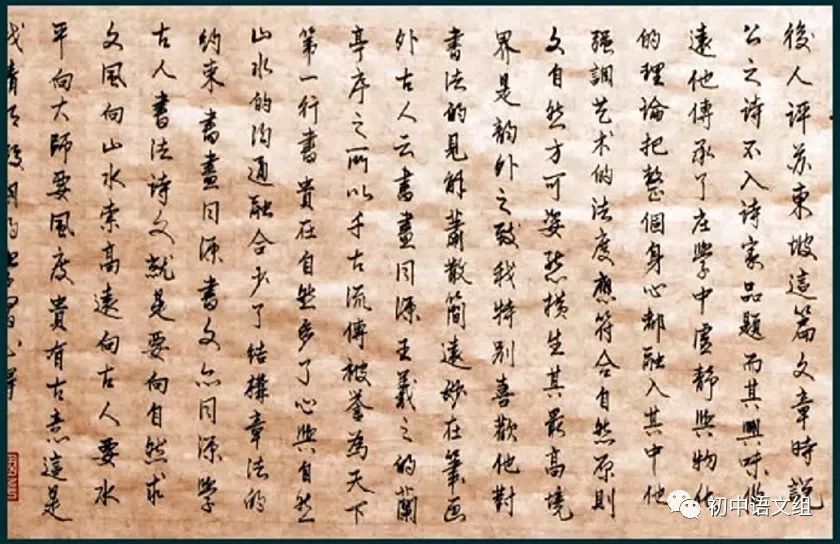 後人评苏東坡這篇文章時說
公之诗不入诗家品題而其興味
遠他傳承了庄學中虛靜與物化
的理论把整個身心都融入其中他
强調艺术的法度應符合自然原則
文自然方可姿態横生其最高境
界是韵外之致我特别喜歡他對
書法的見解蕭散簡遠妙在筆画
外古人云書畫同源王羲之的蘭
亭序之所以千古流傳被誉為天下
第一行書貴在自然多了心與自然
山水的沟通融合少了結構章法的
約束書畫同源書文亦同源學
古人書法诗文就是要向自然求
文風向山水索高遠向古人要水
平向大師要風度貴有古意這是
初中语文组